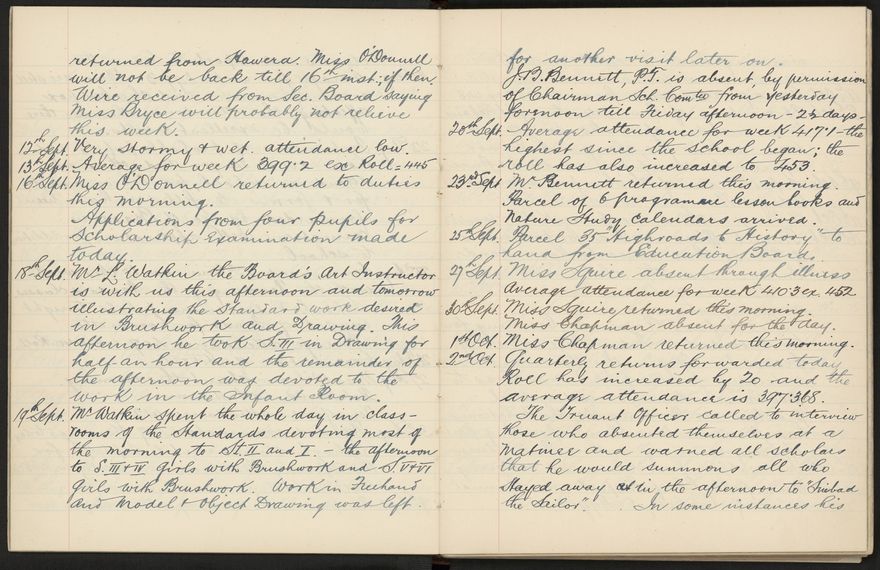 returned from Hawera. Miss O'Donnell
will not be back till 16th inst; if then.
Wire received from Sec. Board saying
Miss Bryce will probably not relieve
this week.
12th Sept. Very stormy & wet. attendance low.
13th Sept. Average for week 399.2 ex Roll = 445
16th Sept. Miss O'Donnell returned to duties
this morning.
Applications from four pupils for
Scholarship Examination made
today.
18th Sept. Mr L. Watkin the Board's Art Instructor
is with us this afternoon and tomorrow
illustrating the Standard work desired
in Brushwork and Drawing. This
afternoon he took S.III in Drawing for
half-an-hour and the remainder of
the afternoon was devoted to the
work in the Infant Room.
19th Sept. Mr Watkin spent the whole day in class-
rooms of the Standards devoting most of
the morning to St. II and I. - the afternoon
to S. III & IV girls with Brushwork and S. V & VI
girls with Brushwork. Work in Freehand
and Model & Object Drawing was left
for another visit later on.
J.B. Bennett, P.T. is absent, by permission
of Chairman Sch. Comtee from yesterday
forenoon till Friday afternoon - 2½ days -
20th Sept. Average attendance for week 417.1 - the
highest since the school began; the
roll has also increased to 453
23rd Sept Mr Bennett returned this morning.
Parcel of 6 programme lesson books and
Nature Study calendars arrived.
25th Sept. Parcel 35 "Highroads to History" to
hand from Education Board.
27th Sept. Miss Squire absent through illness
Average attendance for week 410.3 ex. 452
30th Sept. Miss Squire returned this morning.
Miss Chapman absent for the day.
1st Oct. Miss Chapman returned this morning.
2nd Oct. Quarterly returns forwarded today
Roll has increased by 20 and the
average attendance is 397.368.
The Truant Officer called to interview
those who absented themselves at a
matinee and warned all scholars
that he would summons all who
stayed away in the afternoon to "Sinbad
the Sailor". In some instances his